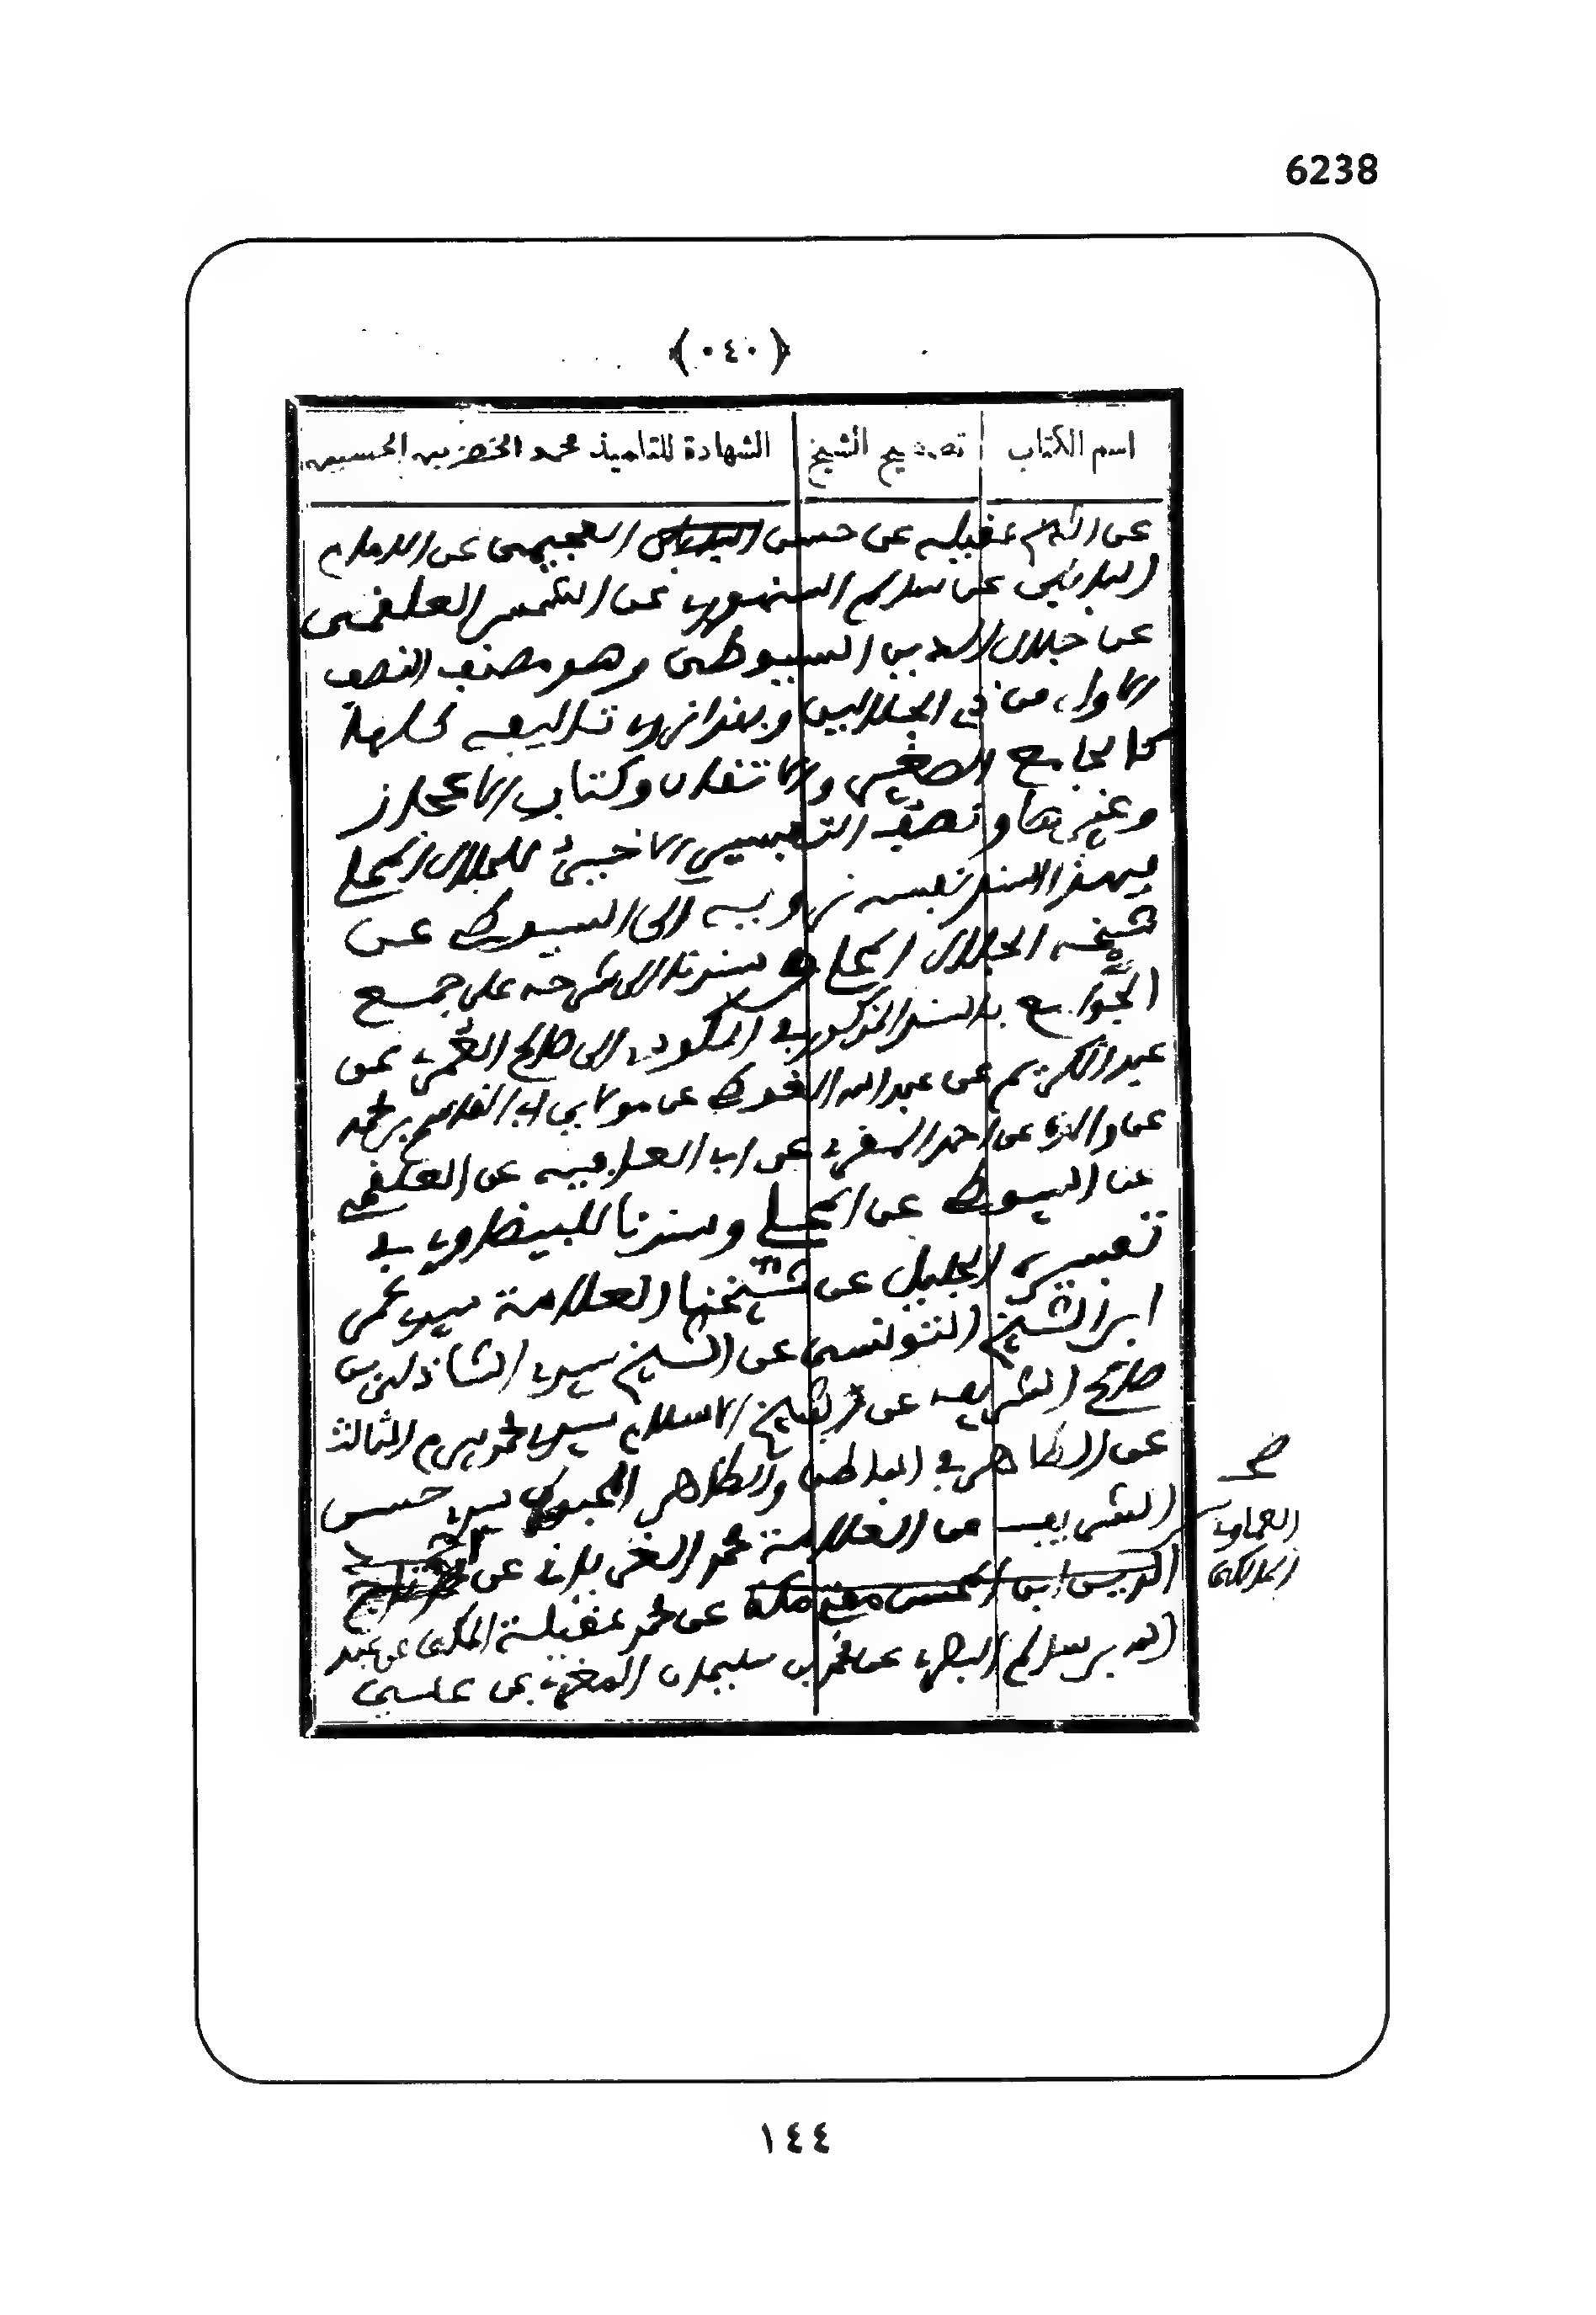 6238
(٠٤٠)
اسم الكتاب تصحيح الشيخ الشهادة للتلميذ محمد الخضر بن الحسين
عن الشام عقيله عن حسن العجيمي عن الامام
البابلي عن سالم السنهوري عن الشمس العلقمي
عن جلال الدين السيوطي وهو مصنف النصف
الاول من ذي الجلالين وبهذا نروي تئاليفه كلها
كالجامع الصغير والاتقان وكتاب الاعجاز
وغيرها ونصف التفسير الاخير للجلال المحلي
بهذا السند نفسه نرويه الى السيوطي عن
شيخه الجلال المحلي وسندنا الى شرحه على جمع
الجوامع بالسند المذكور في المكودي الى صالح العمري عن
عبد الكريم عن عبد الله الغوطي عن مولاي ابي القاسم بن محمد
عن والده عن احمد المقري عن ابي العافية عن العلقمي
عن السيوطي عن المحلي وسندنا للبيضاوي في
تفسيره الجليل عن شيخنا العلامة سيدي عمر
ابن الشيخ التونسي عن الشيخ سيدي الشاذلي بن
صالح الشريف عن شيخ الاسلام سيدي محمد بيرم الثالث
عن الطاهر في الباطن والظاهر المحبوب سيدي حسن
الشريف عن العلامة محمد الغرياني عن
الدريس ابن المحسن مفتي مكة عن محمد عقيلة المكي عن عبد
الله بن سالم البصري عن محمد بن سليمان المغربي عن علي
صح
المالكي
١٤٤